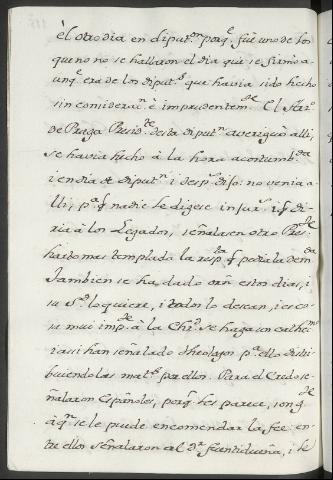 el otro dia en diput.ᵒⁿ porq.ᵉ fue uno de los
que no se hallaron el dia que se firmo a-
unq.ᵉ era de los Diput.ˢ que havia sido hecho
sin considerac.ⁿ è imprudentem.ᵗᵉ El
de Praga Presid.ᵗᵉ desta diput.ⁿ averiguò alli,
se havia hecho à la hora acostumb.ᵈᵃ
i en dia de diput.ⁿ i desp.ˢ dijo: no venia a-
lli, p.ᵃ q̃ nadie le digese injur.ˢ i q̃ di-
ria à los Legados, señalasen otro Pres.ᵗᵉ
harto mas templada la resp.ᵗᵃ q̃ pedia la dem.ᵈᵃ
Tambien se ha dado orñ estos dias, i
su S.ᵈ lo quiere, i todos lo desean, i es co-
sa mui imp.ᵗᵉ à la Chr.ᵈ se haga un cathecis.ᵐᵒ
i assi han señalado theologos p.ᵃ ello distri-
buiendo las mat.ˢ por ellos. Para el Credo se-
ñalaron Españoles, porq.ᵉ les parece, son q.ⁿ
à q.ⁿ se le puede encomendar la fee: en-
tre ellos señalaron al D.ʳ Fuentidueña, i